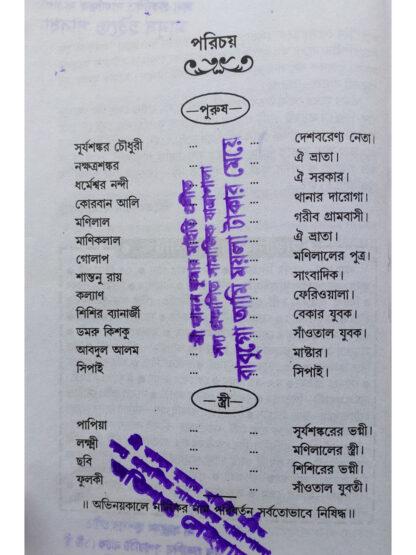 পরিচয়
পুরুষ
সূর্যশঙ্কর চৌধুরী ... ... দেশবরেণ্য নেতা।
নক্ষত্রশঙ্কর ... ... ঐ ভ্রাতা।
ধর্মেশ্বর নন্দী ... ... ঐ সরকার।
কোরবান আলি ... ... থানার দারোগা।
মণিলাল ... ... গরীব গ্রামবাসী।
মাণিকলাল ... ... ঐ ভ্রাতা।
গোলাপ ... ... মণিলালের পুত্র।
শান্তনু রায় ... ... সাংবাদিক।
কল্যাণ ... ... ফেরিওয়ালা।
শিশির ব্যানার্জী ... ... বেকার যুবক।
ডমরু কিশকু ... ... সাঁওতাল যুবক।
আবদুল আলম ... ... মাষ্টার।
সিপাই ... ... সিপাই।
স্ত্রী
পাপিয়া ... ... সূর্যশঙ্করের ভগ্নী।
লক্ষ্মী ... মণিলালের স্ত্রী।
ছবি ... শিশিরের ভগ্নী।
ফুলকী ... সাঁওতাল যুবতী।
॥ অভিনয়কালে নাটকের নাম পরিবর্তন সর্বতোভাবে নিষিদ্ধ ॥
বাবুগো আমি ময়লা টাকার মেয়ে